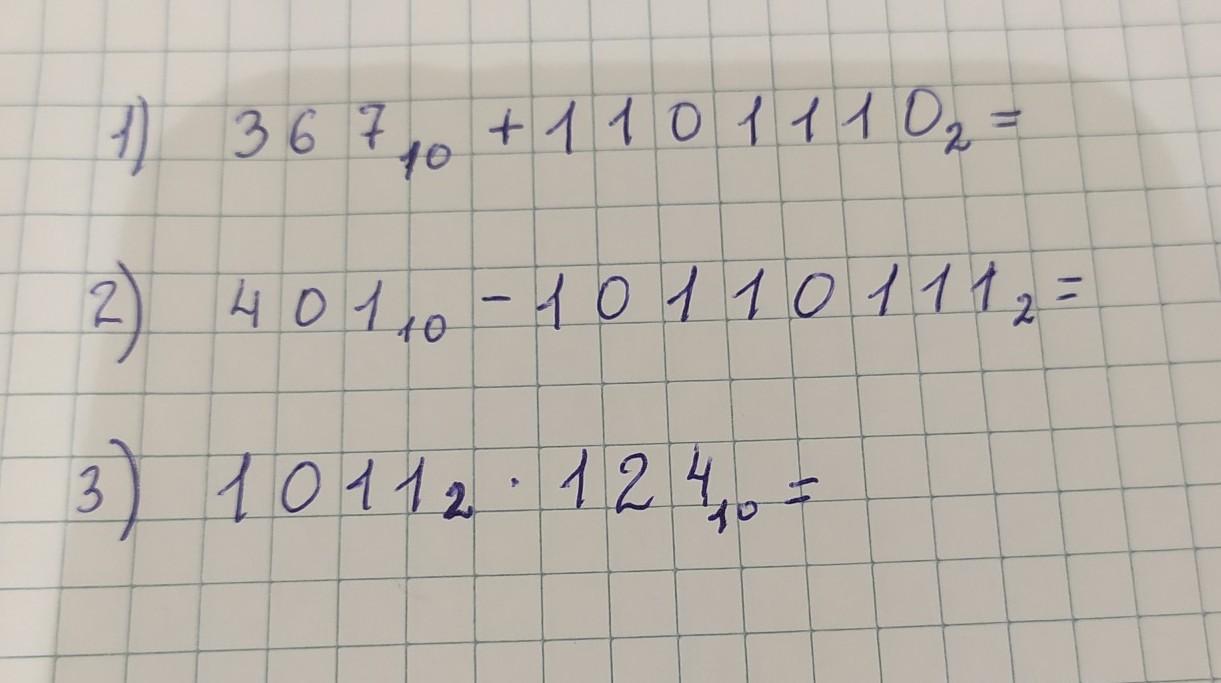 1) 367₁₀ + 1101110₂ =
2) 401₁₀ - 10110111₂ =
3) 1011₂ · 124₁₀ =